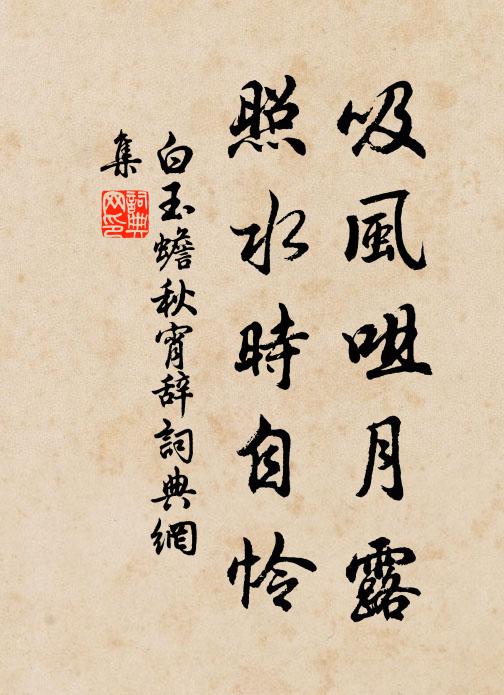 吸風咀月露
照水時自怜
白玉蟾秋宵辞詞典網
集
詞典
网印